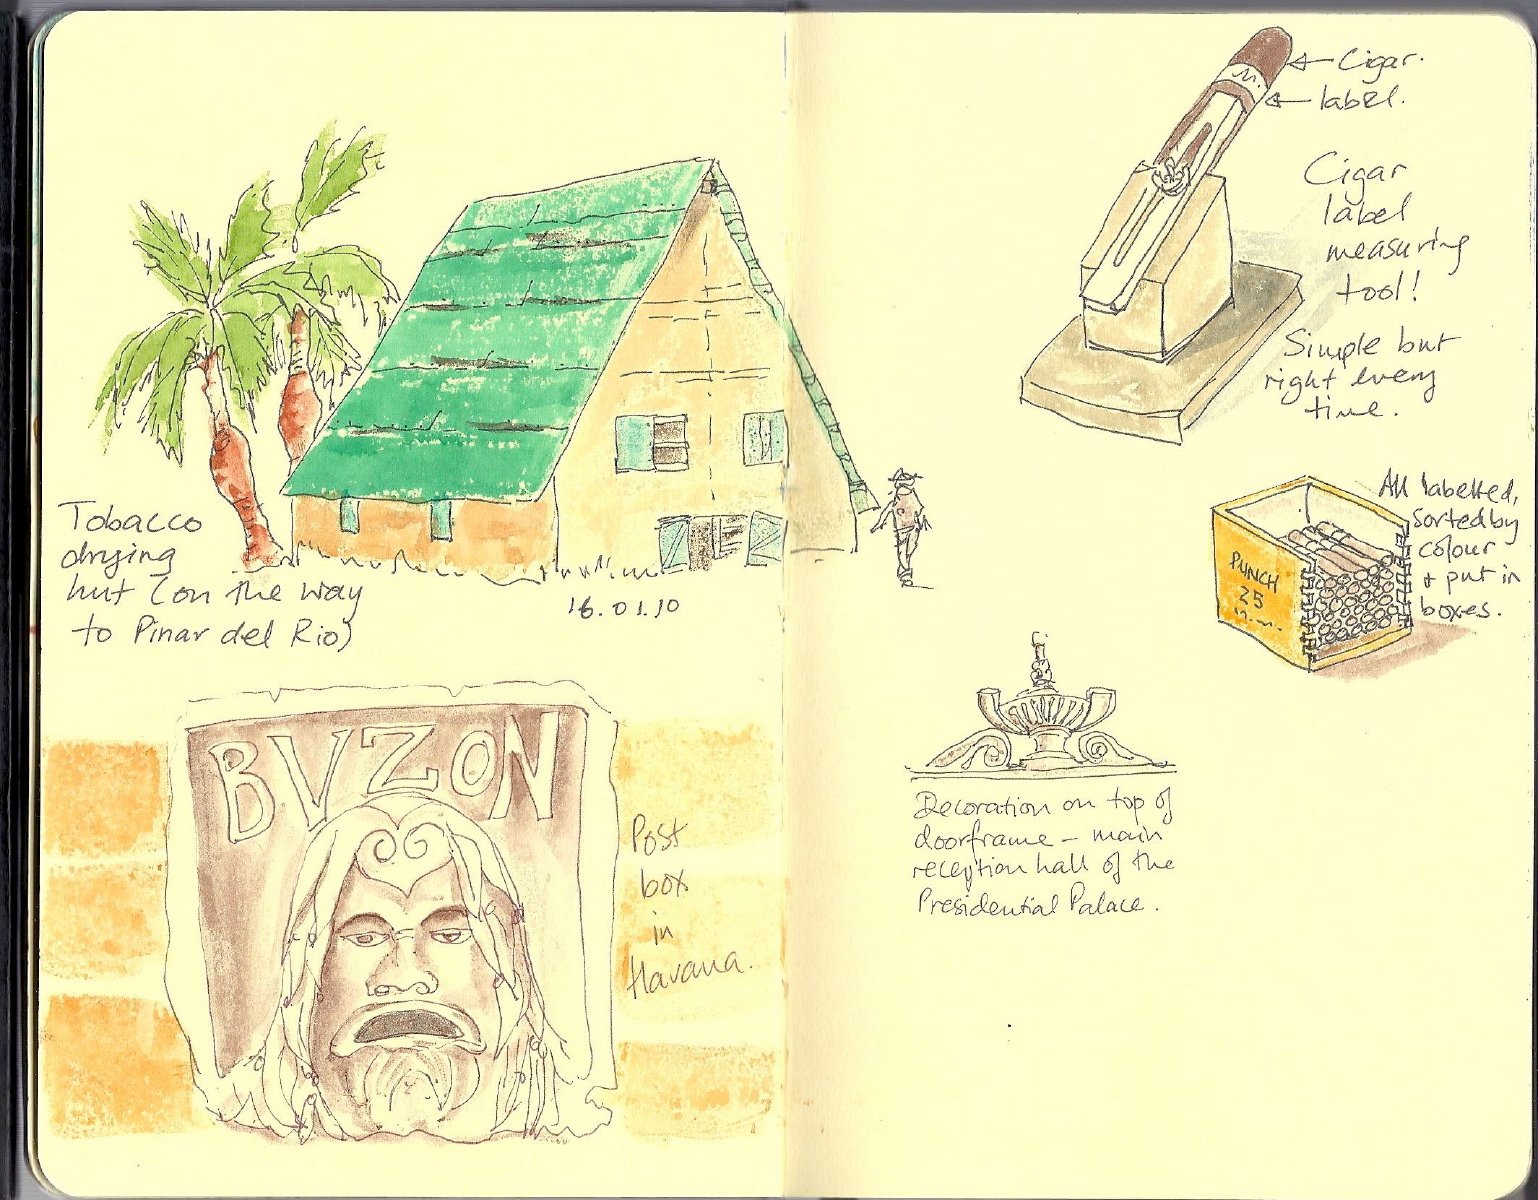 Tobacco
drying
hut (on the way
to Pinar del Rio)
16.01.10
BVZON
Post
box
in
Havana.
Cigar.
label.
Cigar
label
measuring
tool!
Simple but
right every
time.
PUNCH
25
All labelled,
sorted by
colour
+ put in
boxes.
Decoration on top of
doorframe – main
reception hall of the
Presidential Palace.